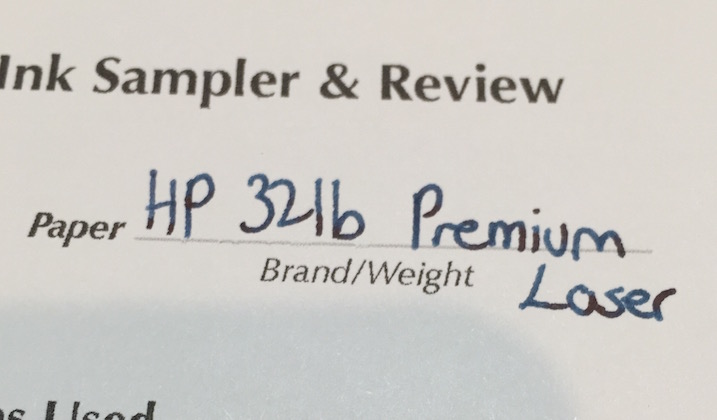 Ink Sampler & Review
Paper HP 32lb Premium
Brand/Weight
Laser
Used